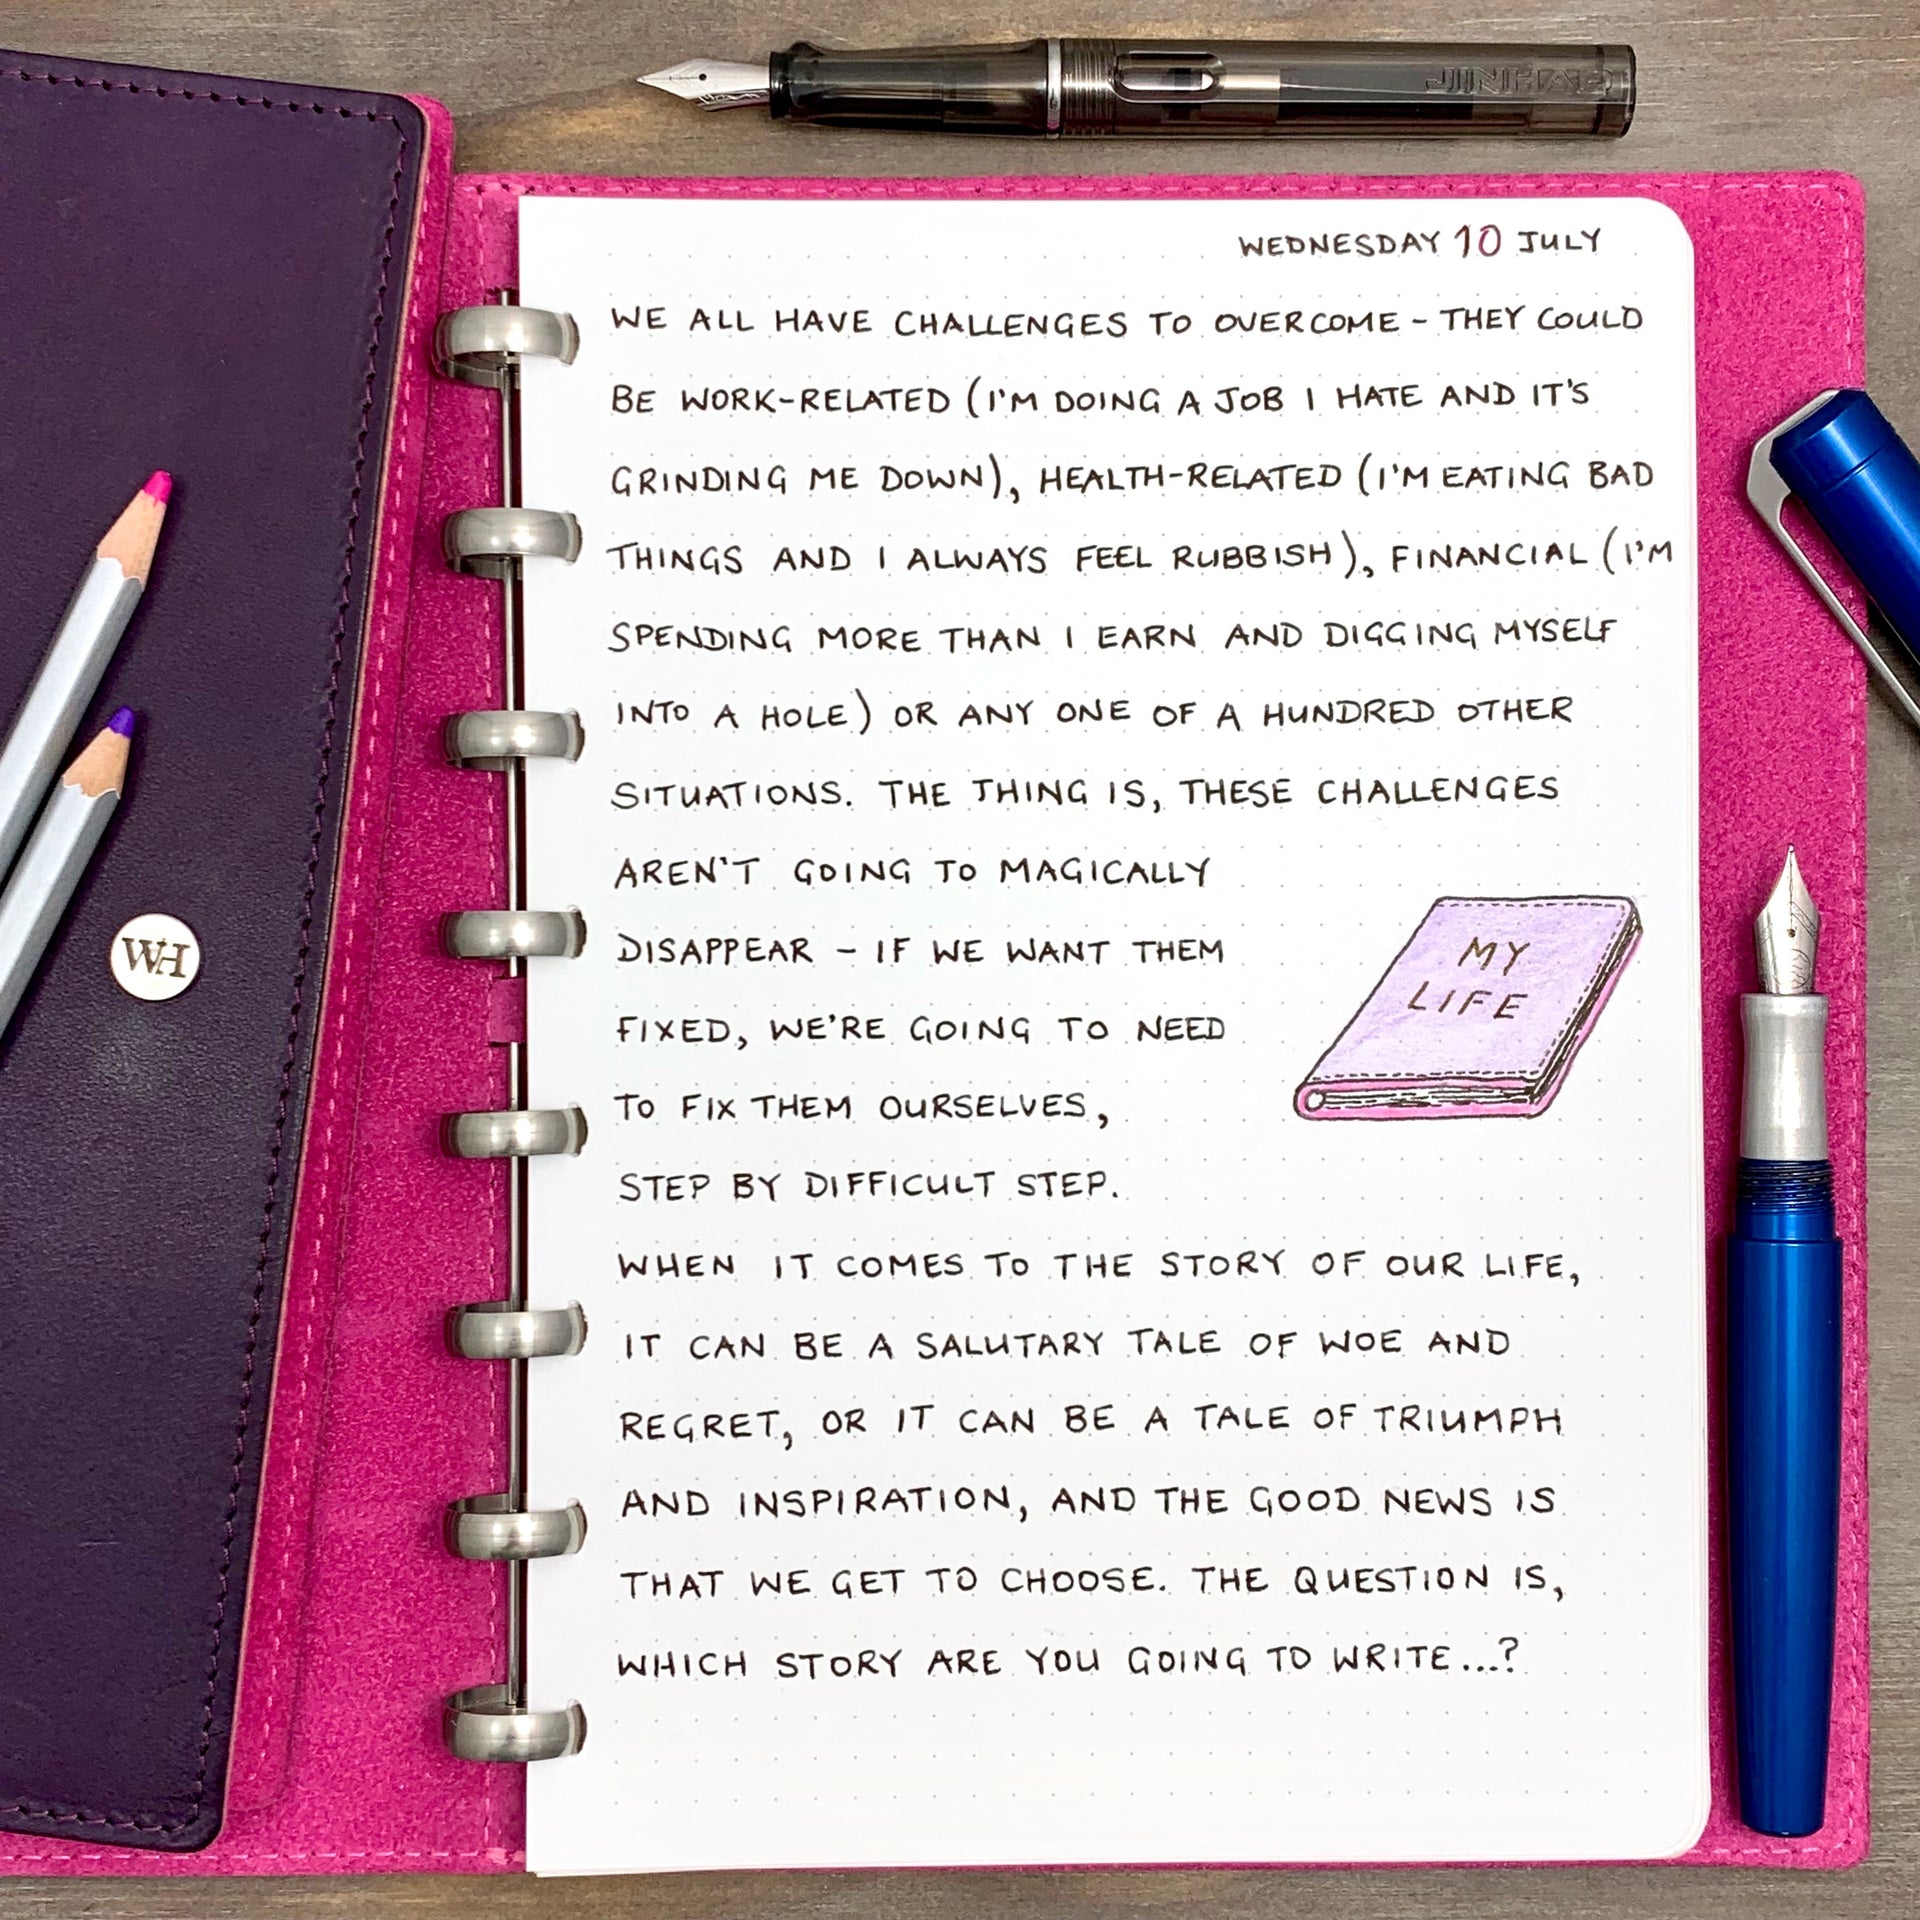 JINHAO
WEDNESDAY 10 JULY
WE ALL HAVE CHALLENGES TO OVERCOME - THEY COULD
BE WORK-RELATED (I'M DOING A JOB I HATE AND IT'S
GRINDING ME DOWN), HEALTH-RELATED (I'M EATING BAD
THINGS AND I ALWAYS FEEL RUBBISH), FINANCIAL (I'M
SPENDING MORE THAN I EARN AND DIGGING MYSELF
INTO A HOLE) OR ANY ONE OF A HUNDRED OTHER
SITUATIONS. THE THING IS, THESE CHALLENGES
AREN'T GOING TO MAGICALLY
DISAPPEAR - IF WE WANT THEM
FIXED, WE'RE GOING TO NEED
TO FIX THEM OURSELVES,
STEP BY DIFFICULT STEP.
MY
LIFE
WHEN IT COMES TO THE STORY OF OUR LIFE,
IT CAN BE A SALUTARY TALE OF WOE AND
REGRET, OR IT CAN BE A TALE OF TRIUMPH
AND INSPIRATION, AND THE GOOD NEWS IS
THAT WE GET TO CHOOSE. THE QUESTION IS,
WHICH STORY ARE YOU GOING TO WRITE...?
WH